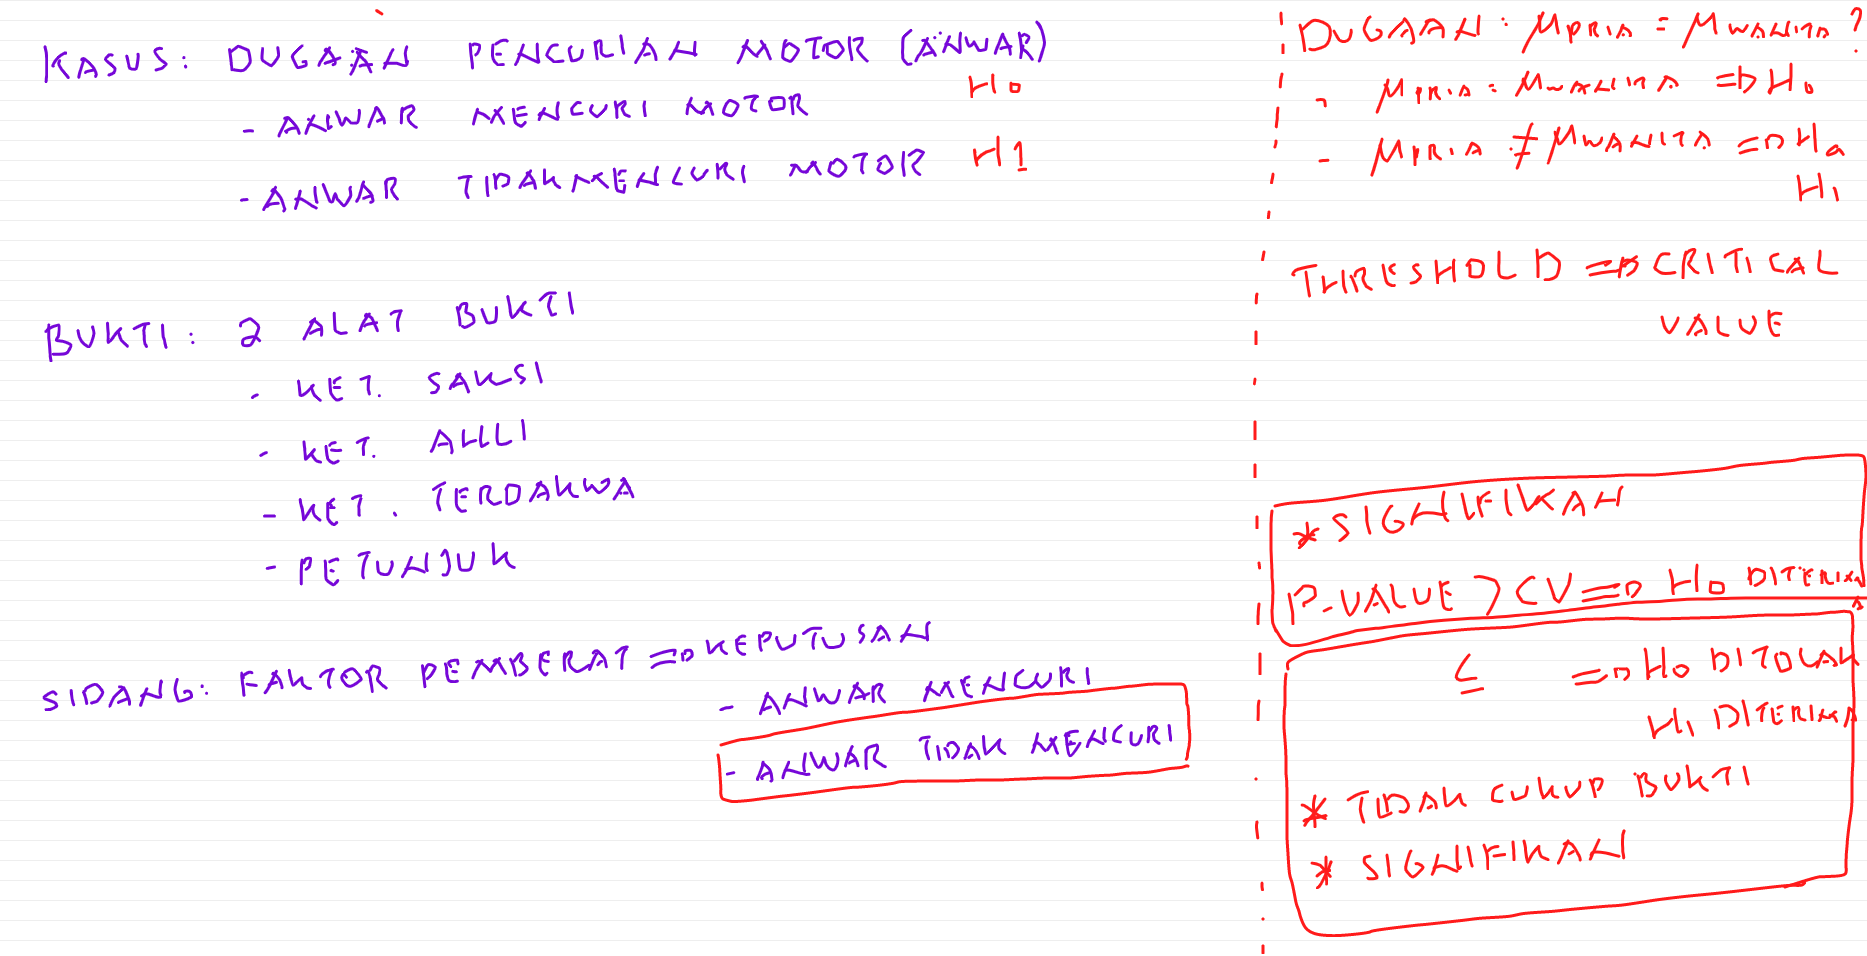 KASUS: DUGAAN PENCURIAN MOTOR (ANWAR)
- ANWAR MENCURI MOTOR H0
- ANWAR TIDAK MENCURI MOTOR H1
BUKTI: 2 ALAT BUKTI
- KET. SAKSI
- KET. AHLI
- KET. TERDAKWA
- PETUNJUK
SIDANG: FAKTOR PEMBERAT => KEPUTUSAN
- ANWAR MENCURI
- ANWAR TIDAK MENCURI
DUGAAN: μPRIA = μWANITA?
- μPRIA = μWANITA => H0
- μPRIA ≠ μWANITA => Ha
H1
THRESHOLD => CRITICAL
VALUE
* SIGNIFIKAN
P-VALUE > CV => H0 DITERIMA
≤ => H0 DITOLAK
H1 DITERIMA
* TIDAK CUKUP BUKTI
* SIGNIFIKAN